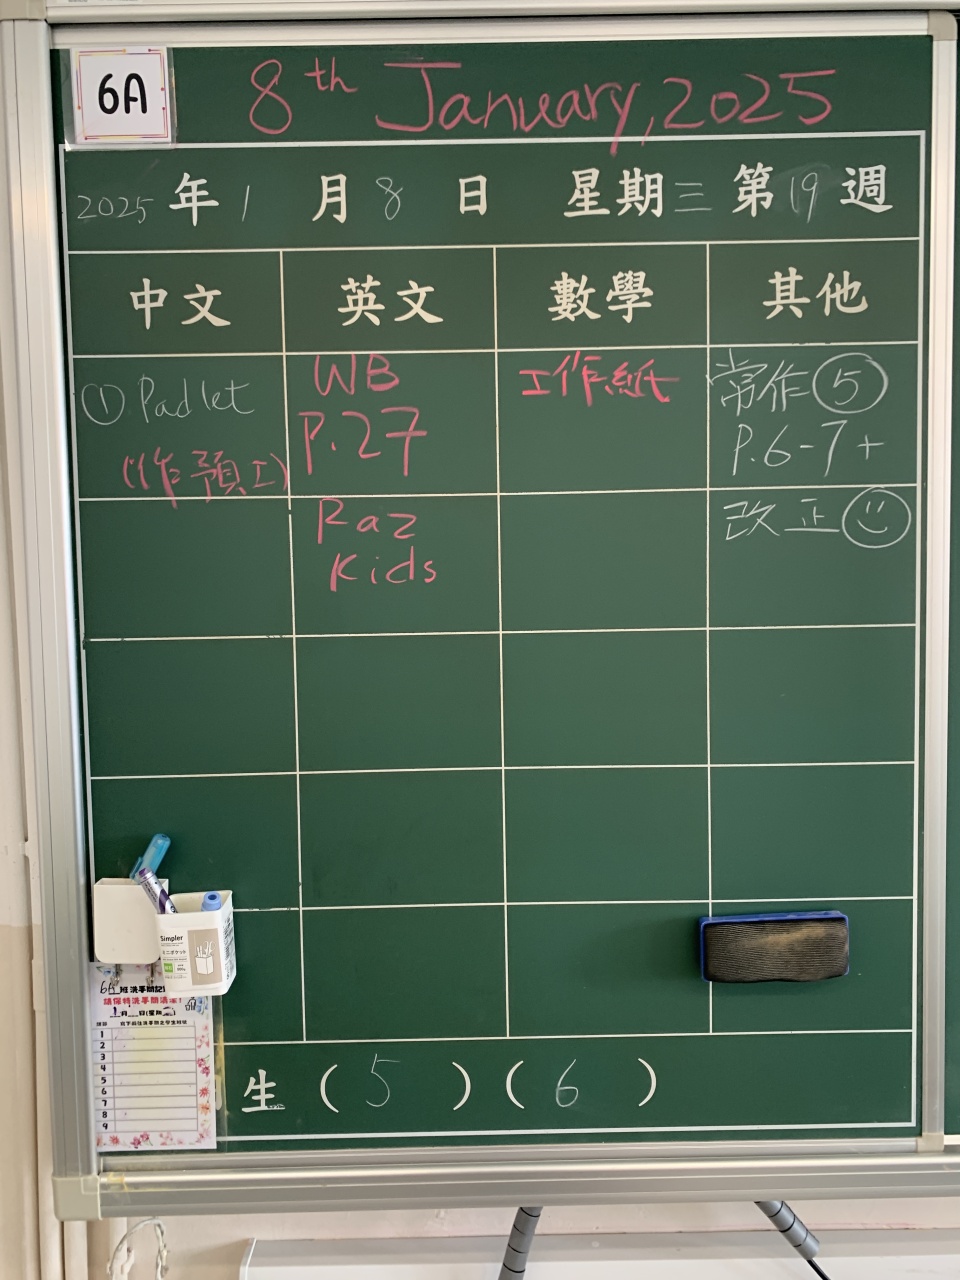 6A
8th January, 2025
2025 年 1 月 8 日 星期三 第 19 週
中文 英文 數學 其他
① Padlet WB 工作紙 常作⑤
(作預工) P.27 P.6-7+
Raz 改正
Kids
Simpler
6A班洗手間記
請保持洗手間清潔!
1
2
3
4
5
6
7
8
9
生 (5) (6)